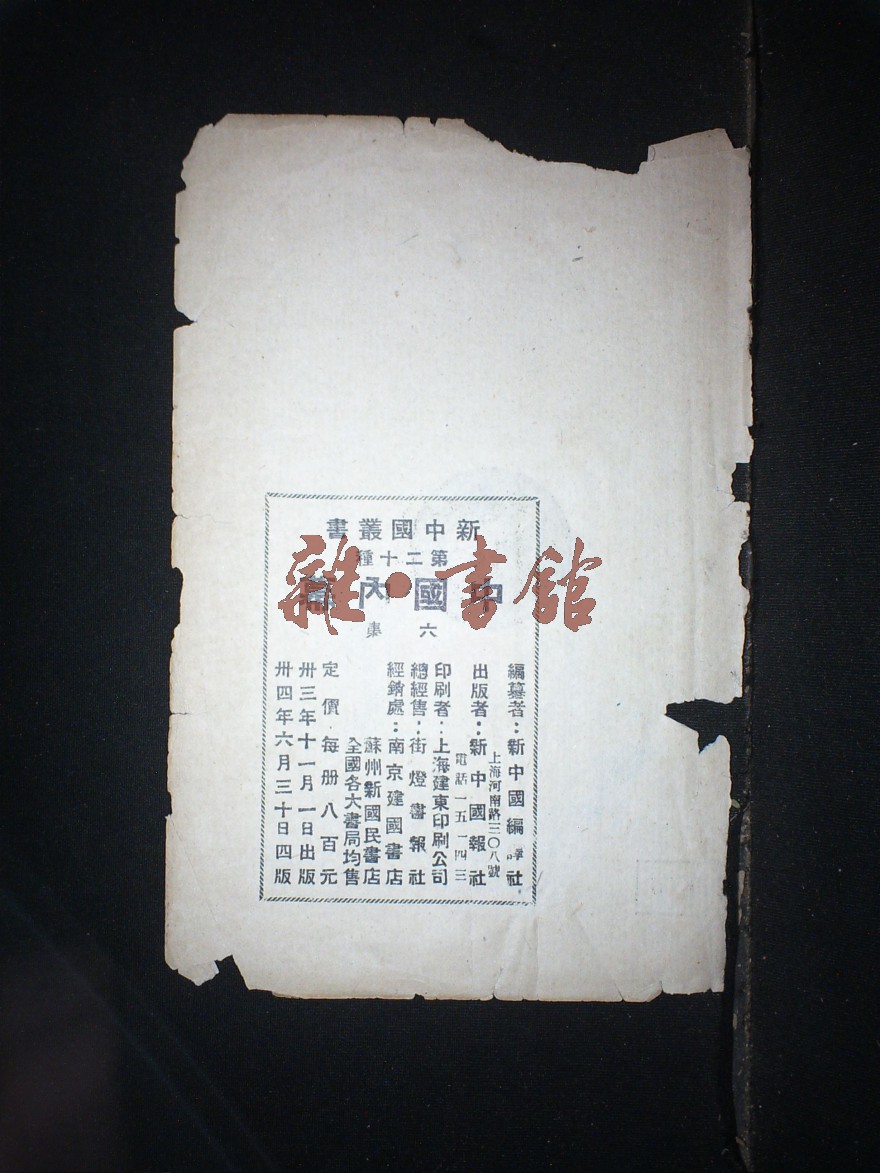 新中國叢書
第二十種
中國內幕
六集
編纂者：新中國編譯社
出版者：新中國報社
上海河南路三〇八號
電話一五一四三
印刷者：上海建東印刷公司
總經售：街燈書報社
經銷處：南京建國書店
蘇州新國民書店
全國各大書局均售
定價：每册八百元
卅三年十一月一日出版
卅四年六月三十日四版
雜·書館